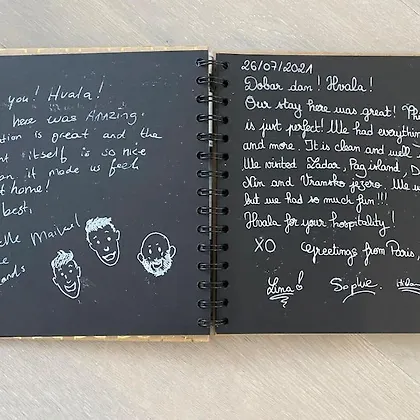 you! Hvala!
here was Amazing.
is great and the
itself is so nice
it made us feel
home!
best,
26/07/2021
Dobar dan! Hvala!
Our stay here was great!
is just perfect! We had everything
and more. It is clean and well
We visited Zadar, Pag island,
Nin and Vransko jezero. We
but we had so much fun!!!
Hvala for your hospitality!
XO Greetings from Paris,
Lina! Sophie.